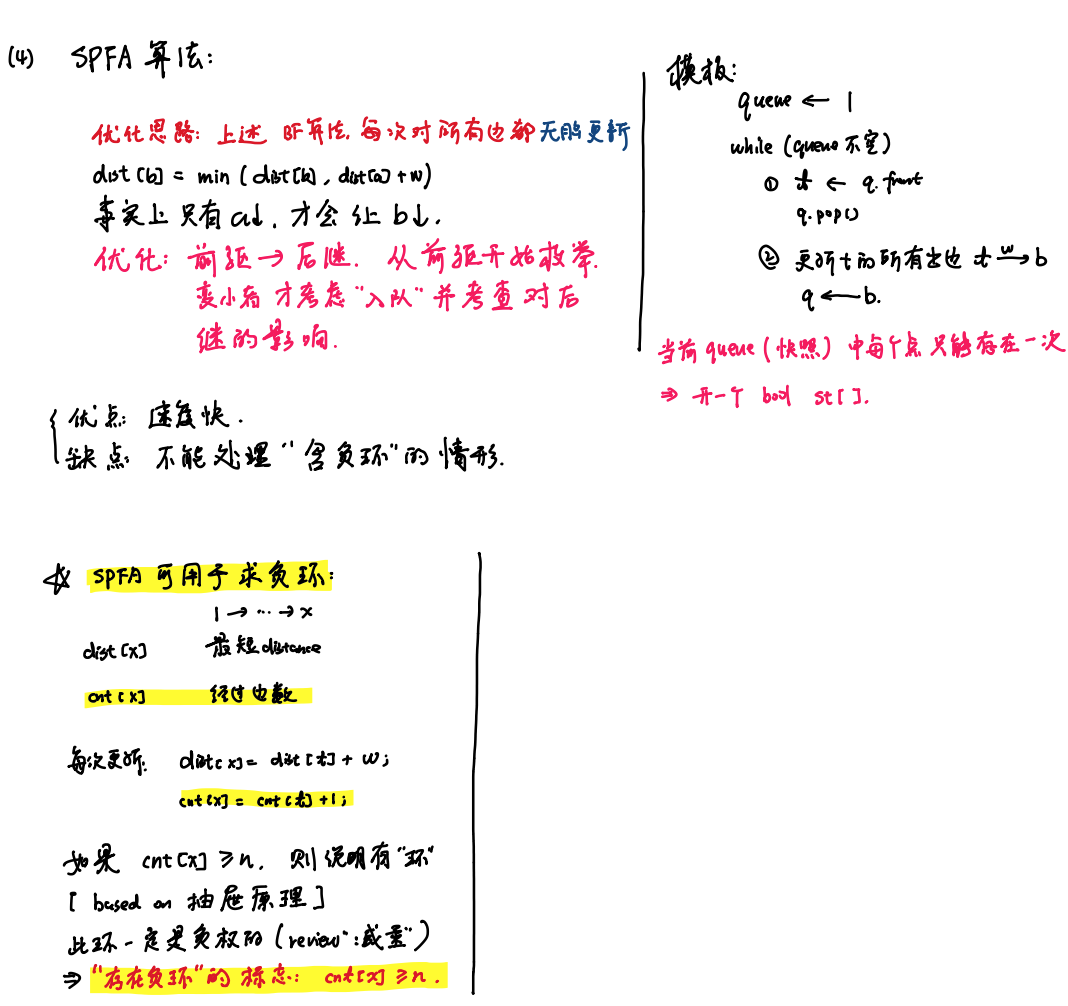 (4) SPFA 算法:
优化思路: 上述 BF算法, 每次对所有边都无脑更新
dist[b] = min (dist[b], dist[a]+w)
事实上 只有 a↓, 才会让 b↓.
优化: 前驱→后继. 从前驱开始枚举.
变小者 才考虑"入队"并考查对后
继的影响.
{ 优点: 速度快.
缺点: 不能处理"含负环"的情形.
模板:
queue ← 1
while (queue 不空)
① t ← q.front
q.pop()
② 更新 t 的所有出边 t —w→ b
q ← b.
当前 queue (快照) 中每个点只能存在一次
⇒ 开一个 bool st[].
☆ SPFA 可用于求负环:
1 → ··· → x
dist[x] 最短 distance
cnt[x] 经过边数
每次更新: dist[x] = dist[t] + w;
cnt[x] = cnt[t] +1;
如果 cnt[x] ≥ n, 则说明有"环"
[ based on 抽屉原理 ]
此环一定是负权的 (review":减重")
⇒ "存在负环"的标志: cnt[x] ≥ n.